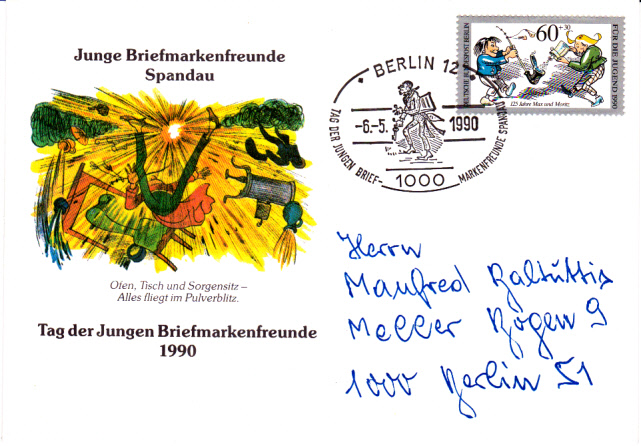 Junge Briefmarkenfreunde
Spandau
Ofen, Tisch und Sorgensitz –
Alles fliegt im Pulverblitz.
Tag der Jungen Briefmarkenfreunde
1990
DEUTSCHE BUNDESPOST BERLIN
60+30
FÜR DIE JUGEND 1990
125 Jahre Max und Moritz
BERLIN 12
-6.-5.
1990
TAG DER JUNGEN BRIEF- MARKENFREUNDE SPANDAU
1000
Herrn
Manfred Baltuttis
Meller Bogen 9
1000 Berlin 51